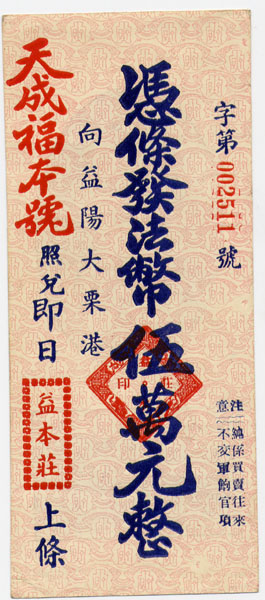 字第002511號
憑條發法幣伍萬元整
注意
一純係買賣往來
二不交軍餉官項
向益陽大栗港
天成福本號
照兌即日
益本莊
上條